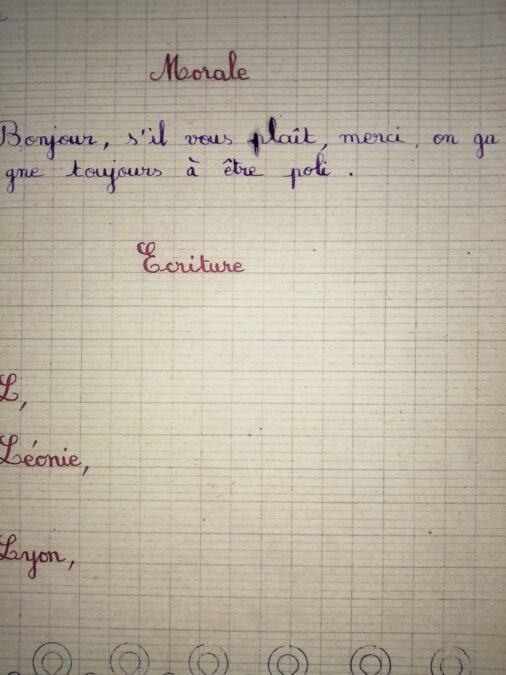 Morale
Bonjour, s'il vous plaît, merci, on ga
gne toujours à être poli.
Ecriture
L,
Léonie,
Lyon,